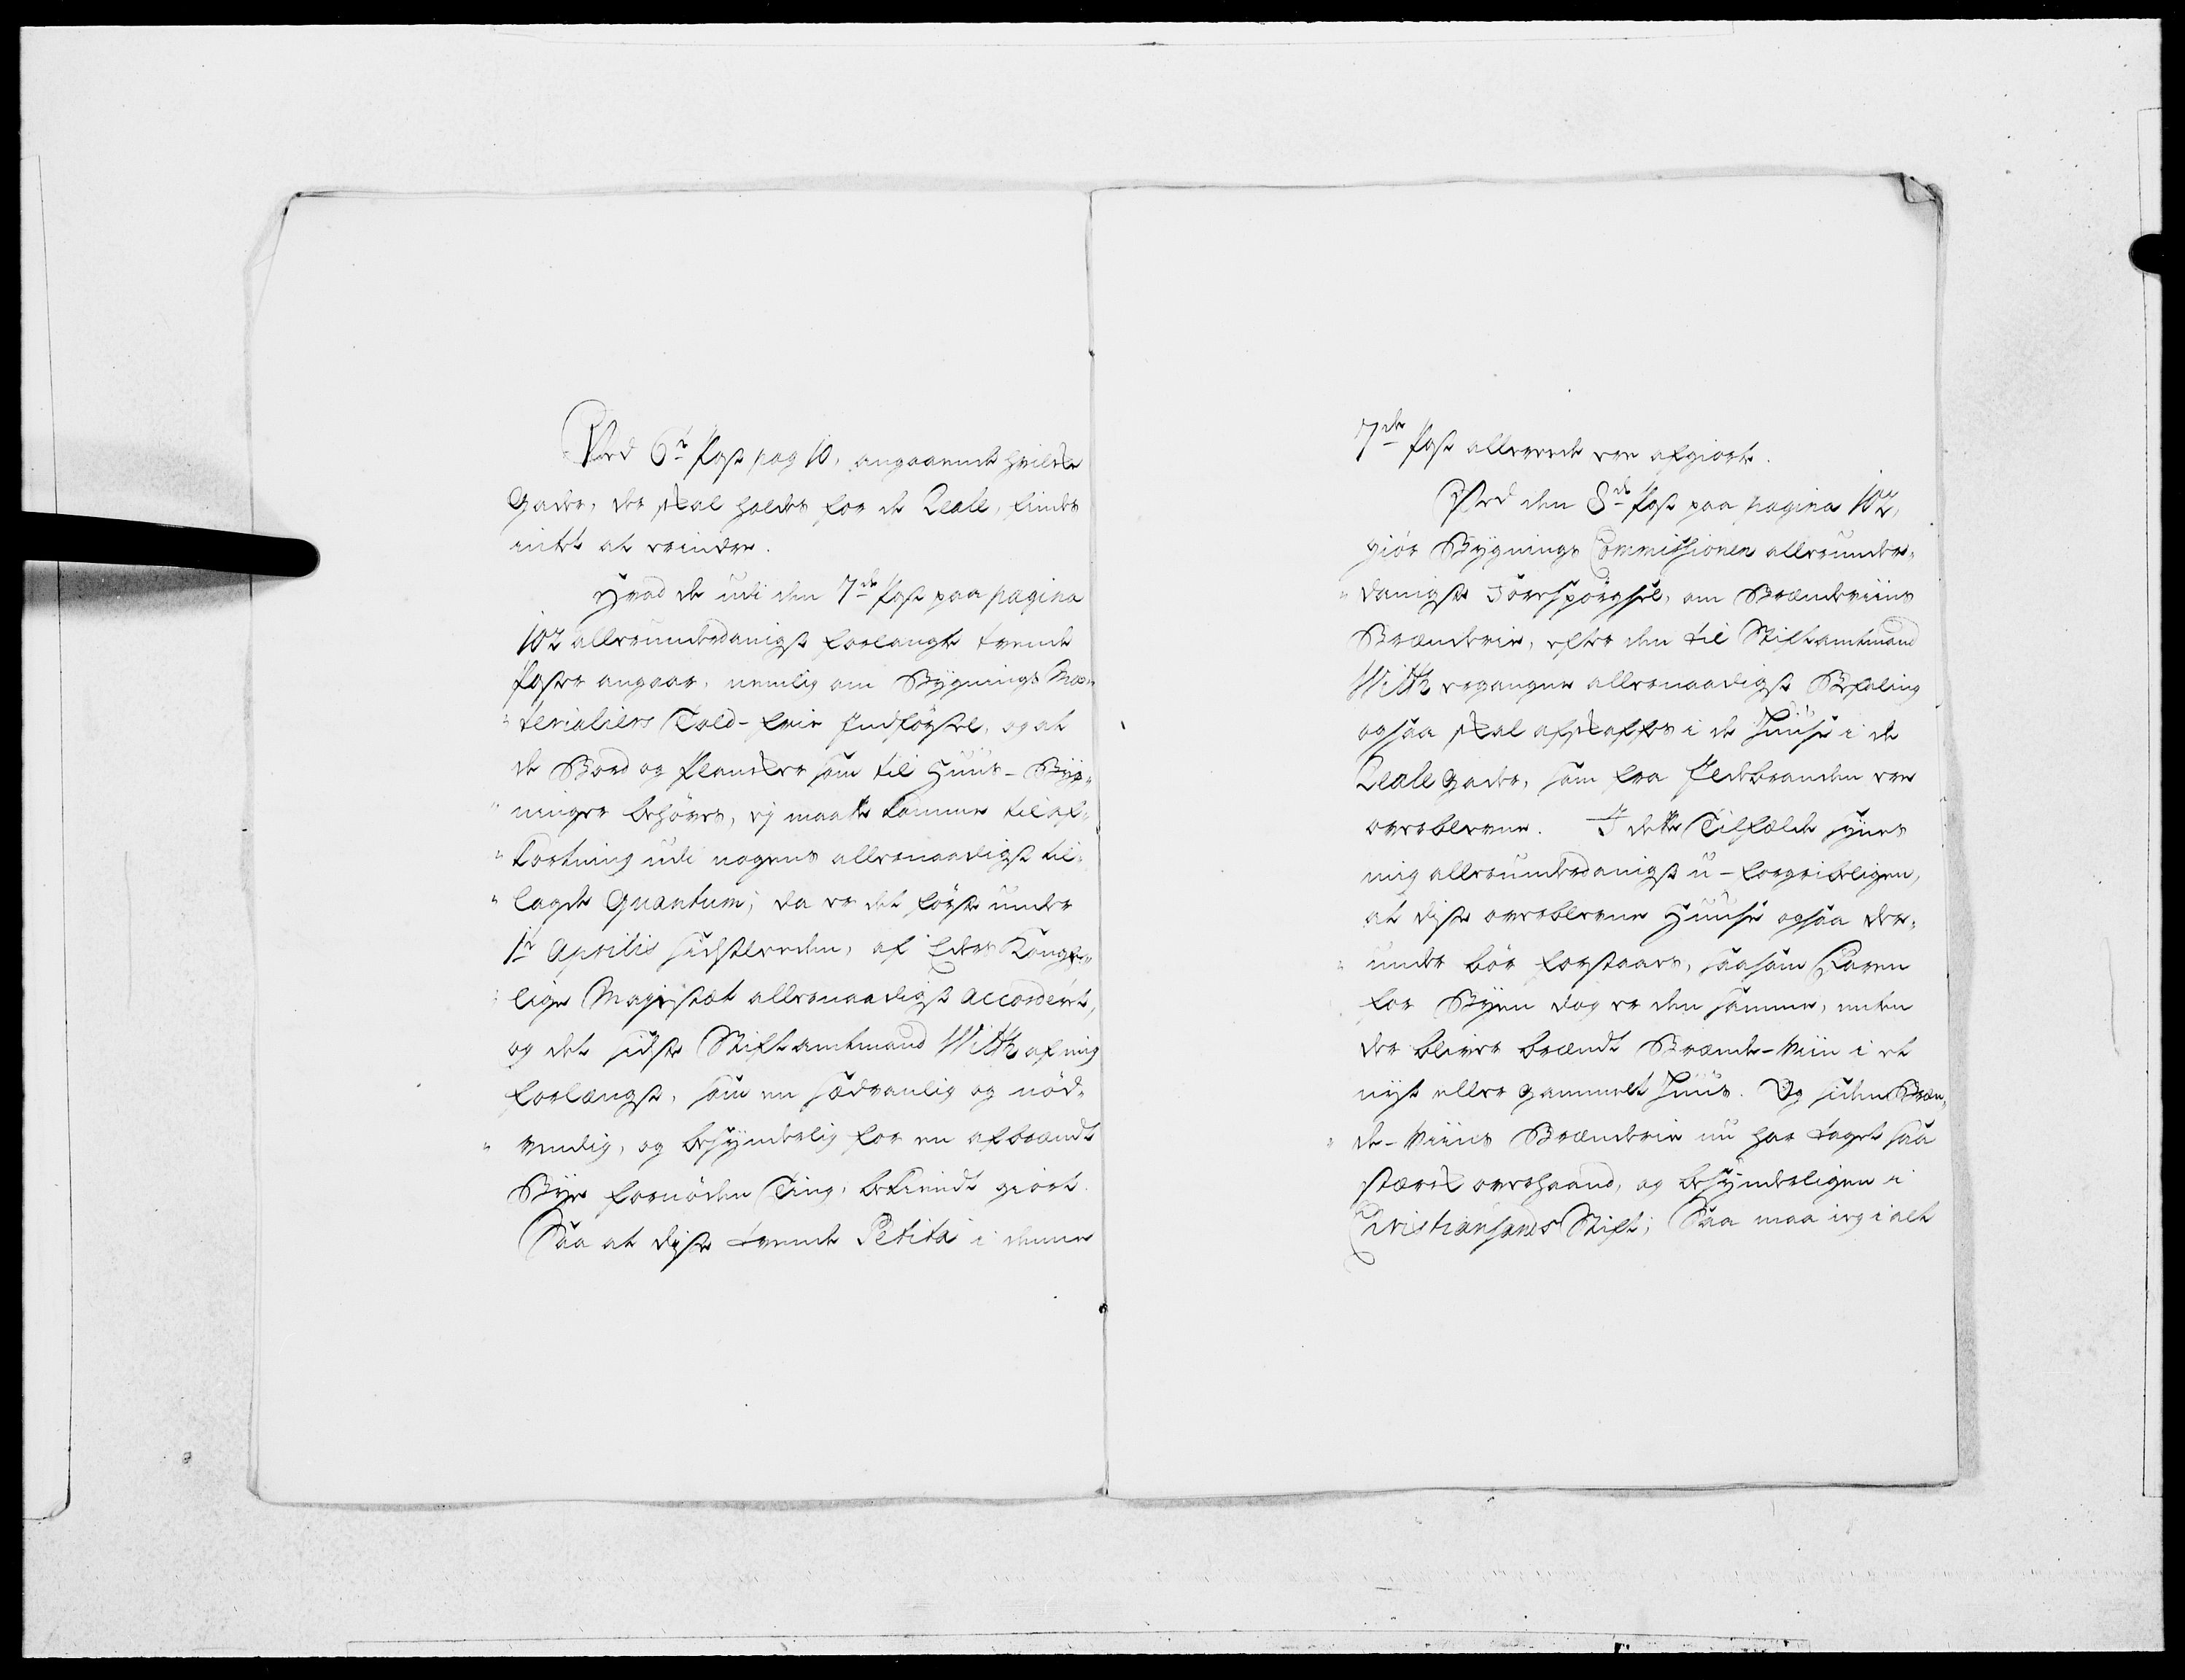 Ved 6te Post pag 10, angaaende hvilke
Gader, der skal holdes for de Reale, findes
intet at erindre.
Hvad de udi den 7de Post paa pagina
102 allerunderdanigst forlangte tvende
Poster angaar, nemlig om Bygnings Ma-
terialiers Told-frie Indførsel, og at
de Bord og Plancker som til Huus-Byg-
ninger behøves, ej maatte komme til af-
kortning udi nogens allernaadigst til-
lagde Quantum; da er det første under
1te Aprilis sidstleeden, af Eders Konge-
lige Majestæt allernaadigst accorderet,
og det sidste Stiftamtmand Witth af mig
forlængst, som en sædvanlig og nød-
vendig, og besynderlig for en afbrændt
Bye fornøden Ting, bekiendt giort.
Saa at disse tvende Petita i denne
7de Post allereede ere afgiorte.
Ved den 8de Post paa pagina 102,
giør Bygnings Commissionen allerunder-
danigste Forespørgsel, om Brændeviins
Brænderie, efter den til Stiftamtmand
Witth ergangne allernaadigste Befaling
ogsaa skal afskaffes i de Huuse i de
Reale Gader, som fra Ildebranden ere
overblevne. I dette Tilfælde synes
mig allerunderdanigst u-forgribeligen,
at disse overblevne Huuse ogsaa der-
under bør forstaaes, saasom Faren
for Byen dog er den samme, enten
der bliver brændt Brænde-Viin i et
nyt eller gammelt Huus. Og siden Bræn-
de-Viins Brænderie nu har taget saa
stærk overhaand, og besynderligen i
Christiansands Stift; Saa maa ieg i alt